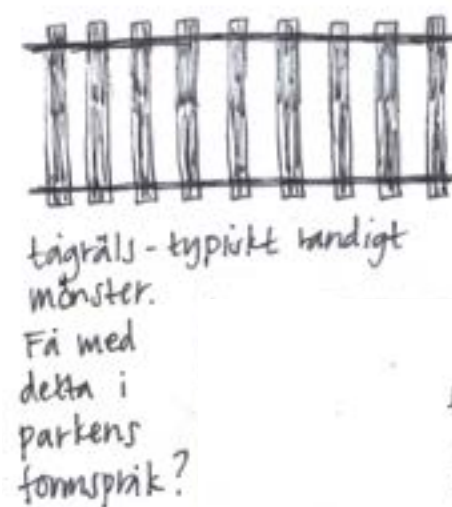 tågräls - typiskt randigt
mönster.
Få med
detta i
parkens
formspråk?